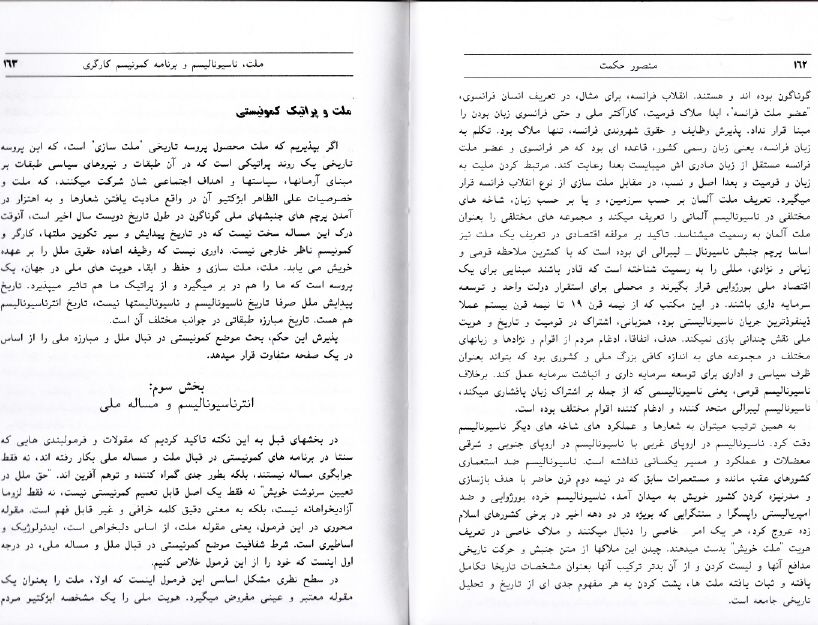 ۱۶۲ منصور حکمت
گوناگون بوده اند و هستند. انقلاب فرانسه، برای مثال، در تعریف انسان فرانسوی،
"عضو ملت فرانسه"، ابدا ملاک قومیت، کارآکتر ملی و حتی فرانسوی زبان بودن را
مبنا قرار نداد. پذیرش وظایف و حقوق شهروندی فرانسه، تنها ملاک بود. تکلم به
زبان فرانسه، یعنی زبان رسمی کشور، قاعده ای بود که هر فرانسوی و عضو ملت
فرانسه مستقل از زبان مادری اش میبایست بعدا رعایت کند. مرتبط کردن ملیت به
زبان و قومیت و بعدا اصل و نسب، در مقابل ملت سازی از نوع انقلاب فرانسه قرار
میگیرد. تعریف ملت آلمان بر حسب سرزمین، و یا بر حسب زبان، شاخه های
مختلفی در ناسیونالیسم آلمانی را تعریف میکند و مجموعه های مختلفی را بعنوان
ملت آلمان به رسمیت میشناسد. تاکید بر مولفه اقتصادی در تعریف یک ملت نیز
اساسا پرچم جنبش ناسیونال ـ لیبرالی ای بوده است که با کمترین ملاحظه قومی و
زبانی و نژادی، مللی را به رسمیت شناخته است که قادر باشند مبنایی برای یک
اقتصاد ملی بورژوایی قرار بگیرند و محملی برای استقرار دولت واحد و توسعه
سرمایه داری باشند. در این مکتب که از نیمه قرن ۱۹ تا نیمه قرن بیستم عملا
ذینفوذترین جریان ناسیونالیستی بود، همزبانی، اشتراک در قومیت و تاریخ و هویت
ملی نقش چندانی بازی نمیکند. هدف، اتفاقا، ادغام مردم از اقوام و نژادها و زبانهای
مختلف در مجموعه های به اندازه کافی بزرگ ملی و کشوری بود که بتواند بعنوان
ظرف سیاسی و اداری برای توسعه سرمایه داری و انباشت سرمایه عمل کند. برخلاف
ناسیونالیسم قومی، یعنی ناسیونالیسمی که از جمله بر اشتراک زبان پافشاری میکند،
ناسیونالیسم لیبرالی متحد کننده و ادغام کننده اقوام مختلف بوده است.
به همین ترتیب میتوان به شعارها و عملکرد های شاخه های دیگر ناسیونالیسم
دقت کرد. ناسیونالیسم در اروپای غربی با ناسیونالیسم در اروپای جنوبی و شرقی
معضلات و عملکرد و مسیر یکسانی نداشته است. ناسیونالیسم ضد استعماری
کشورهای عقب مانده و مستعمرات سابق که در نیمه دوم قرن حاضر با هدف بازسازی
و مدرنیزه کردن کشور خویش به میدان آمد، ناسیونالیسم خرده بورژوایی و ضد
امپریالیستی واپسگرا و سنتگرایی که بویژه در دو دهه اخیر در برخی کشورهای اسلام
زده عروج کرد، هر یک امر خاصی را دنبال میکنند و ملاک خاصی در تعریف
هویت "ملت خویش" بدست میدهند. چیدن این ملاکها از متن جنبش و حرکت تاریخی
مدافع آنها و لیست کردن و از آن بدتر ترکیب آنها بعنوان مشخصات تاریخا تکامل
یافته و ثبات یافته ملت ها، پشت کردن به هر مفهوم جدی ای از تاریخ و تحلیل
تاریخی جامعه است.
ملت، ناسیونالیسم و برنامه کمونیسم کارگری ۱۶۳
ملت و پراتیک کمونیستی
اگر بپذیریم که ملت محصول پروسه تاریخی "ملت سازی" است، که این پروسه
تاریخی یک روند پراتیکی است که در آن طبقات و نیروهای سیاسی طبقات بر
مبنای آرمانها، سیاستها و اهداف اجتماعی شان شرکت میکنند، که ملت و
خصوصیات علی الظاهر ابژکتیو آن در واقع مادیت یافتن شعارها و به اهتزاز در
آمدن پرچم های جنبشهای ملی گوناگون در طول تاریخ دویست سال اخیر است، آنوقت
درک این مساله سخت نیست که در تاریخ پیدایش و سیر تکوین ملتها، کارگر و
کمونیسم ناظر خارجی نیست. داوری نیست که وظیفه اعاده حقوق ملل را بر عهده
خویش می یابد. ملت، ملت سازی و حفظ و ابقاء هویت های ملی در جهان، یک
پروسه است که ما را هم در بر میگیرد و از پراتیک ما هم تاثیر میپذیرد. تاریخ
پیدایش ملل صرفا تاریخ ناسیونالیسم و ناسیونالیستها نیست، تاریخ انترناسیونالیسم
هم هست. تاریخ مبارزه طبقاتی در جوانب مختلف آن است.
پذیرش این حکم، بحث موضع کمونیستی در قبال ملل و مبارزه ملی را از اساس
در یک صفحه متفاوت قرار میدهد.
بخش سوم:
انترناسیونالیسم و مساله ملی
در بخشهای قبل به این نکته تاکید کردیم که مقولات و فرمولبندی هایی که
سنتا در برنامه های کمونیستی در قبال ملت و مساله ملی بکار رفته اند، نه فقط
جوابگوی مساله نیستند، بلکه بطور جدی گمراه کننده و توهم آفرین اند. "حق ملل در
تعیین سرنوشت خویش" نه فقط یک اصل قابل تعمیم کمونیستی نیست، نه فقط لزوما
آزادیخواهانه نیست، بلکه به معنی دقیق کلمه خرافی و غیر قابل فهم است. مقوله
محوری در این فرمول، یعنی مقوله ملت، از اساس دلبخواهی است، ایدئولوژیک و
اساطیری است. شرط شفافیت موضع کمونیستی در قبال ملل و مساله ملی، در درجه
اول اینست که خود را از این فرمول خلاص کنیم.
در سطح نظری مشکل اساسی این فرمول اینست که اولا، ملت را بعنوان یک
مقوله معتبر و عینی مفروض میگیرد. هویت ملی را یک مشخصه ابژکتیو مردم